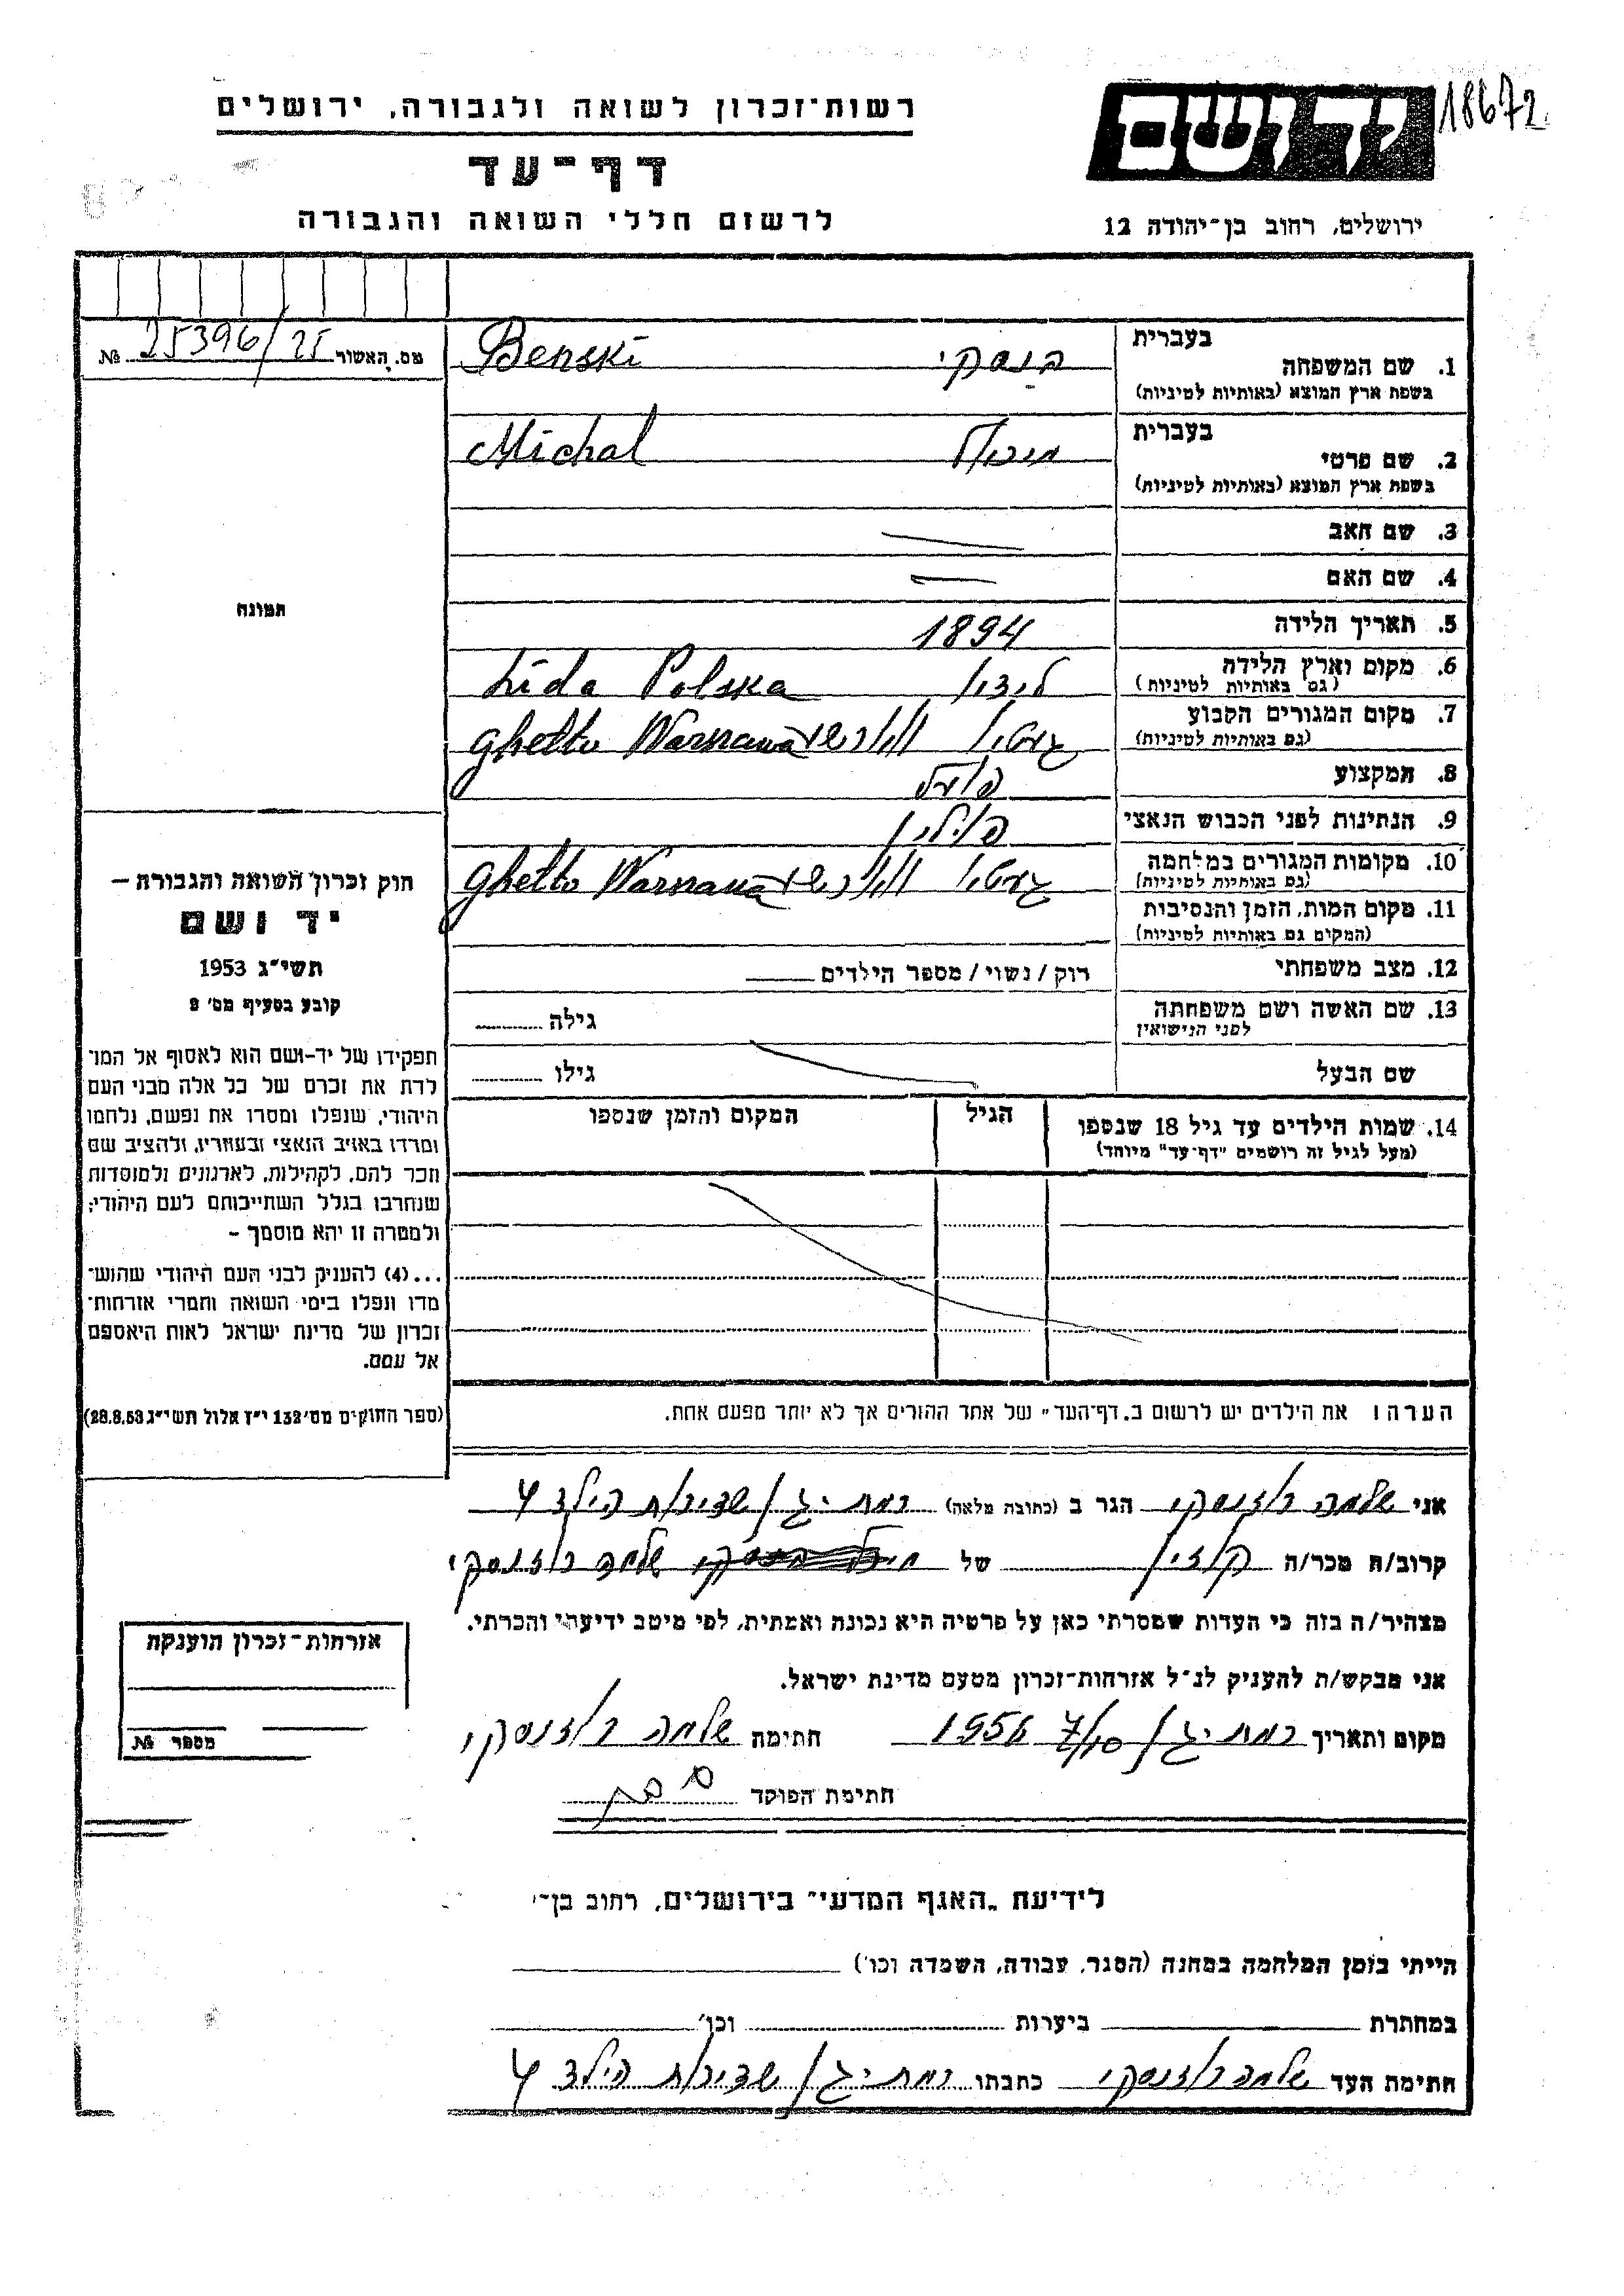 18672
יד ושם
רשות-זכרון לשואה ולגבורה, ירושלים
דף-עד
לרשום חללי השואה והגבורה
ירושלים, רחוב בן-יהודה 12
מס. האשור 25396/25 №
בעברית
1. שם המשפחה בנסקי Benski
בשפת ארץ המוצא (באותיות לטיניות)
בעברית
2. שם פרטי Michal
בשפת ארץ המוצא (באותיות לטיניות)
3. שם האב —
4. שם האם —
5. תאריך הלידה 1894
6. מקום וארץ הלידה Lida Polska
(גם באותיות לטיניות)
7. מקום המגורים הקבוע גיטו ורשה ghetto Warszawa
(גם באותיות לטיניות)
8. המקצוע פועל
9. הנתינות לפני הכבוש הנאצי פולין
10. מקומות המגורים במלחמה גיטו ורשה ghetto Warszawa
(גם באותיות לטיניות)
11. מקום המות, הזמן והנסיבות
(המקום גם באותיות לטיניות)
12. מצב משפחתי רוק / נשוי / מספר הילדים
13. שם האשה ושם משפחתה
לפני הנישואין
גילה
שם הבעל גילו
14. שמות הילדים עד גיל 18 שנספו
(מעל לגיל זה רושמים "דף-עד" מיוחד)
הגיל
המקום והזמן שנספו
תמונה
חוק זכרון השואה והגבורה –
יד ושם
תשי"ג 1953
קובע בסעיף מס' 2
תפקידו של יד-ושם הוא לאסוף אל המו־
לדת את זכרם של כל אלה מבני העם
היהודי, שנפלו ומסרו את נפשם, נלחמו
ומרדו באויב הנאצי ובעוזריו, ולהציב שם
וזכר להם, לקהילות, לארגונים ולמוסדות
שנחרבו בגלל השתייכותם לעם היהודי;
ולמטרה זו יהא מוסמך –
...(4) להעניק לבני העם היהודי שהוש־
מדו ונפלו בימי השואה והמרי אזרחות־
זכרון של מדינת ישראל לאות היאספם
אל עמם.
(ספר החוקים מס' 132 י"ז אלול תשי"ג 28.8.53)
הערה: את הילדים יש לרשום ב„דף-העד" של אחד ההורים אך לא יותר מפעם אחת.
אני שלמה רוזנסקי הגר ב (כתובת מלאה) רמת-יג שדירות הילד 4
קרוב/ה מכר/ה של שלמה רוזנסקי
מצהיר/ה בזה כי העדות שמסרתי כאן על פרטיה היא נכונה ואמתית, לפי מיטב ידיעתי והכרתי.
אני מבקש/ת להעניק לנ"ל אזרחות-זכרון מטעם מדינת ישראל.
מקום ותאריך 7/10 1956 חתימה שלמה רוזנסקי
חתימת הפוקד
אזרחות-זכרון הוענקה
מספר №
לידיעת „האגף המדעי" בירושלים, רחוב בן-י
הייתי בזמן המלחמה במחנה (הסגר, עבודה, השמדה וכו')
במחתרת ביערות וכו'
חתימת העד שלמה רוזנסקי כתבתו רמת-יג שדירות הילד 4